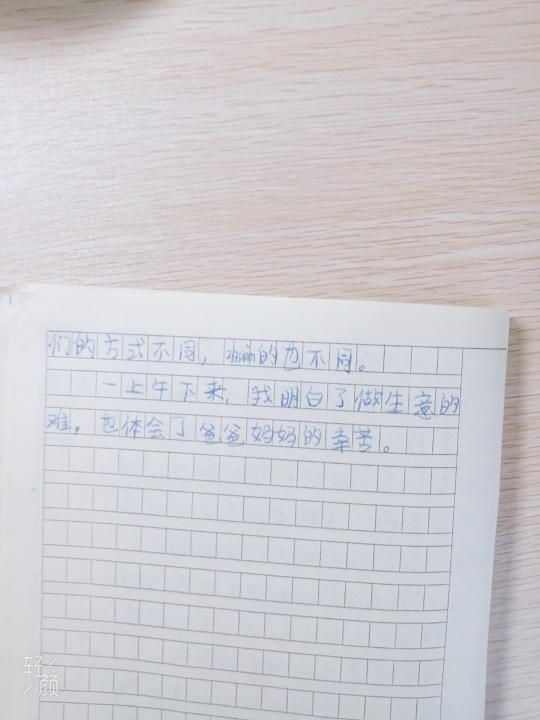 们的方式不同，的也不同。
一上午下来，我明白了做生意的
难，也体会了爸爸妈妈的幸苦。
轻
颜